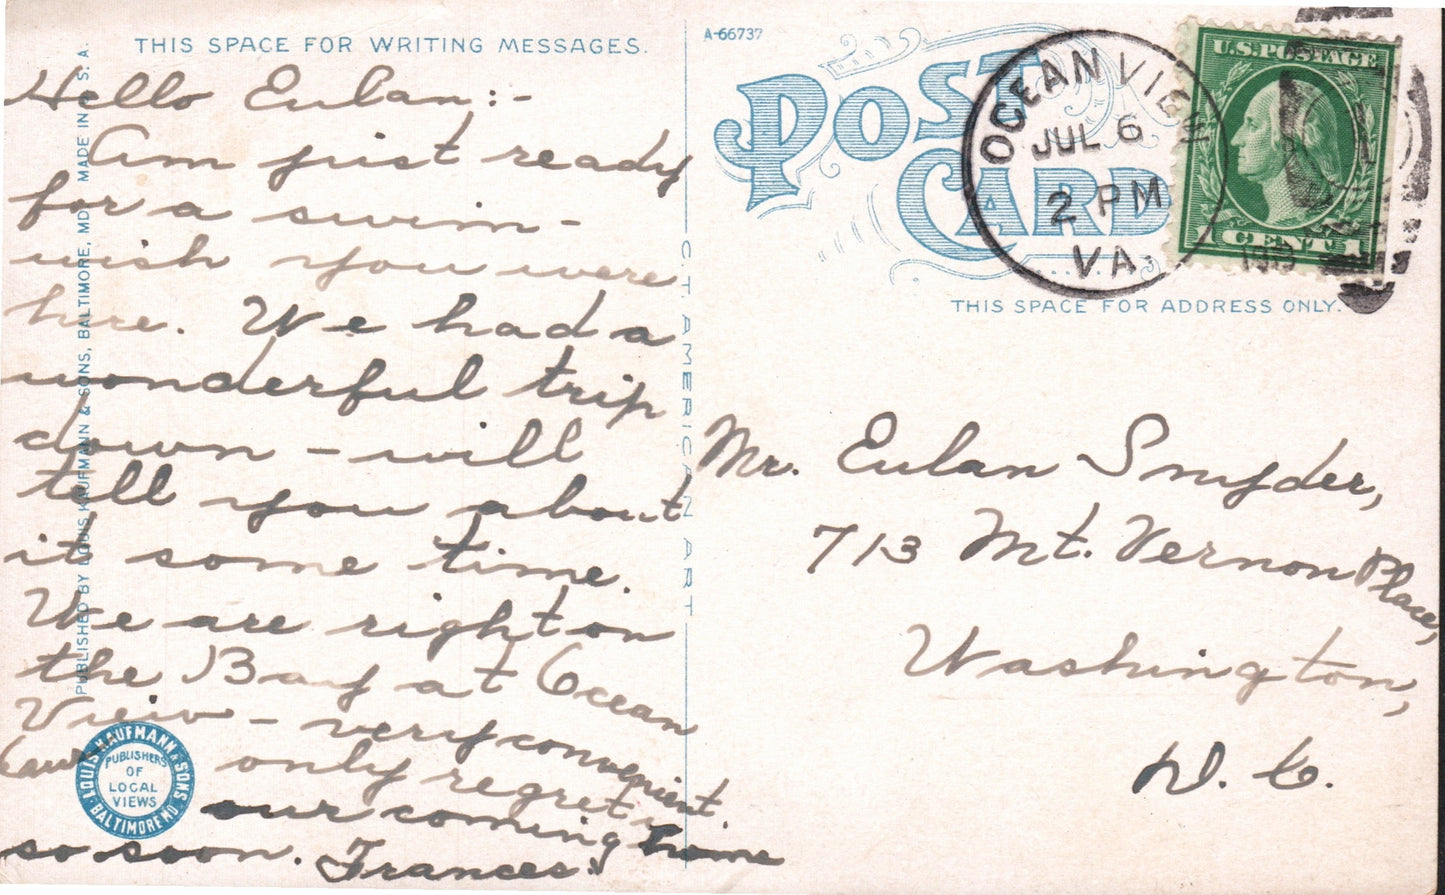 THIS SPACE FOR WRITING MESSAGES.
Hello Eulan:-
Am just ready
for a swim-
wish you were
here. We had a
wonderful trip
down - will
tell you about
it some time.
We are right on
the Bay at Ocean
View - very convenient.
only regret is
our coming home
so soon. Frances.
PUBLISHED BY LOUIS KAUFMANN & SONS, BALTIMORE, MD. MADE IN U.S.A.
LOUIS KAUFMANN & SONS
BALTIMORE MD.
PUBLISHERS
OF
LOCAL
VIEWS
C.T. AMERICAN ART
A-66737
POST
CARD
OCEAN VIEW
JUL 6
2 PM
VA.
U.S. POSTAGE
1 CENT 1
THIS SPACE FOR ADDRESS ONLY.
Mr. Eulan Snyder,
713 Mt. Vernon Place,
Washington,
D. C.